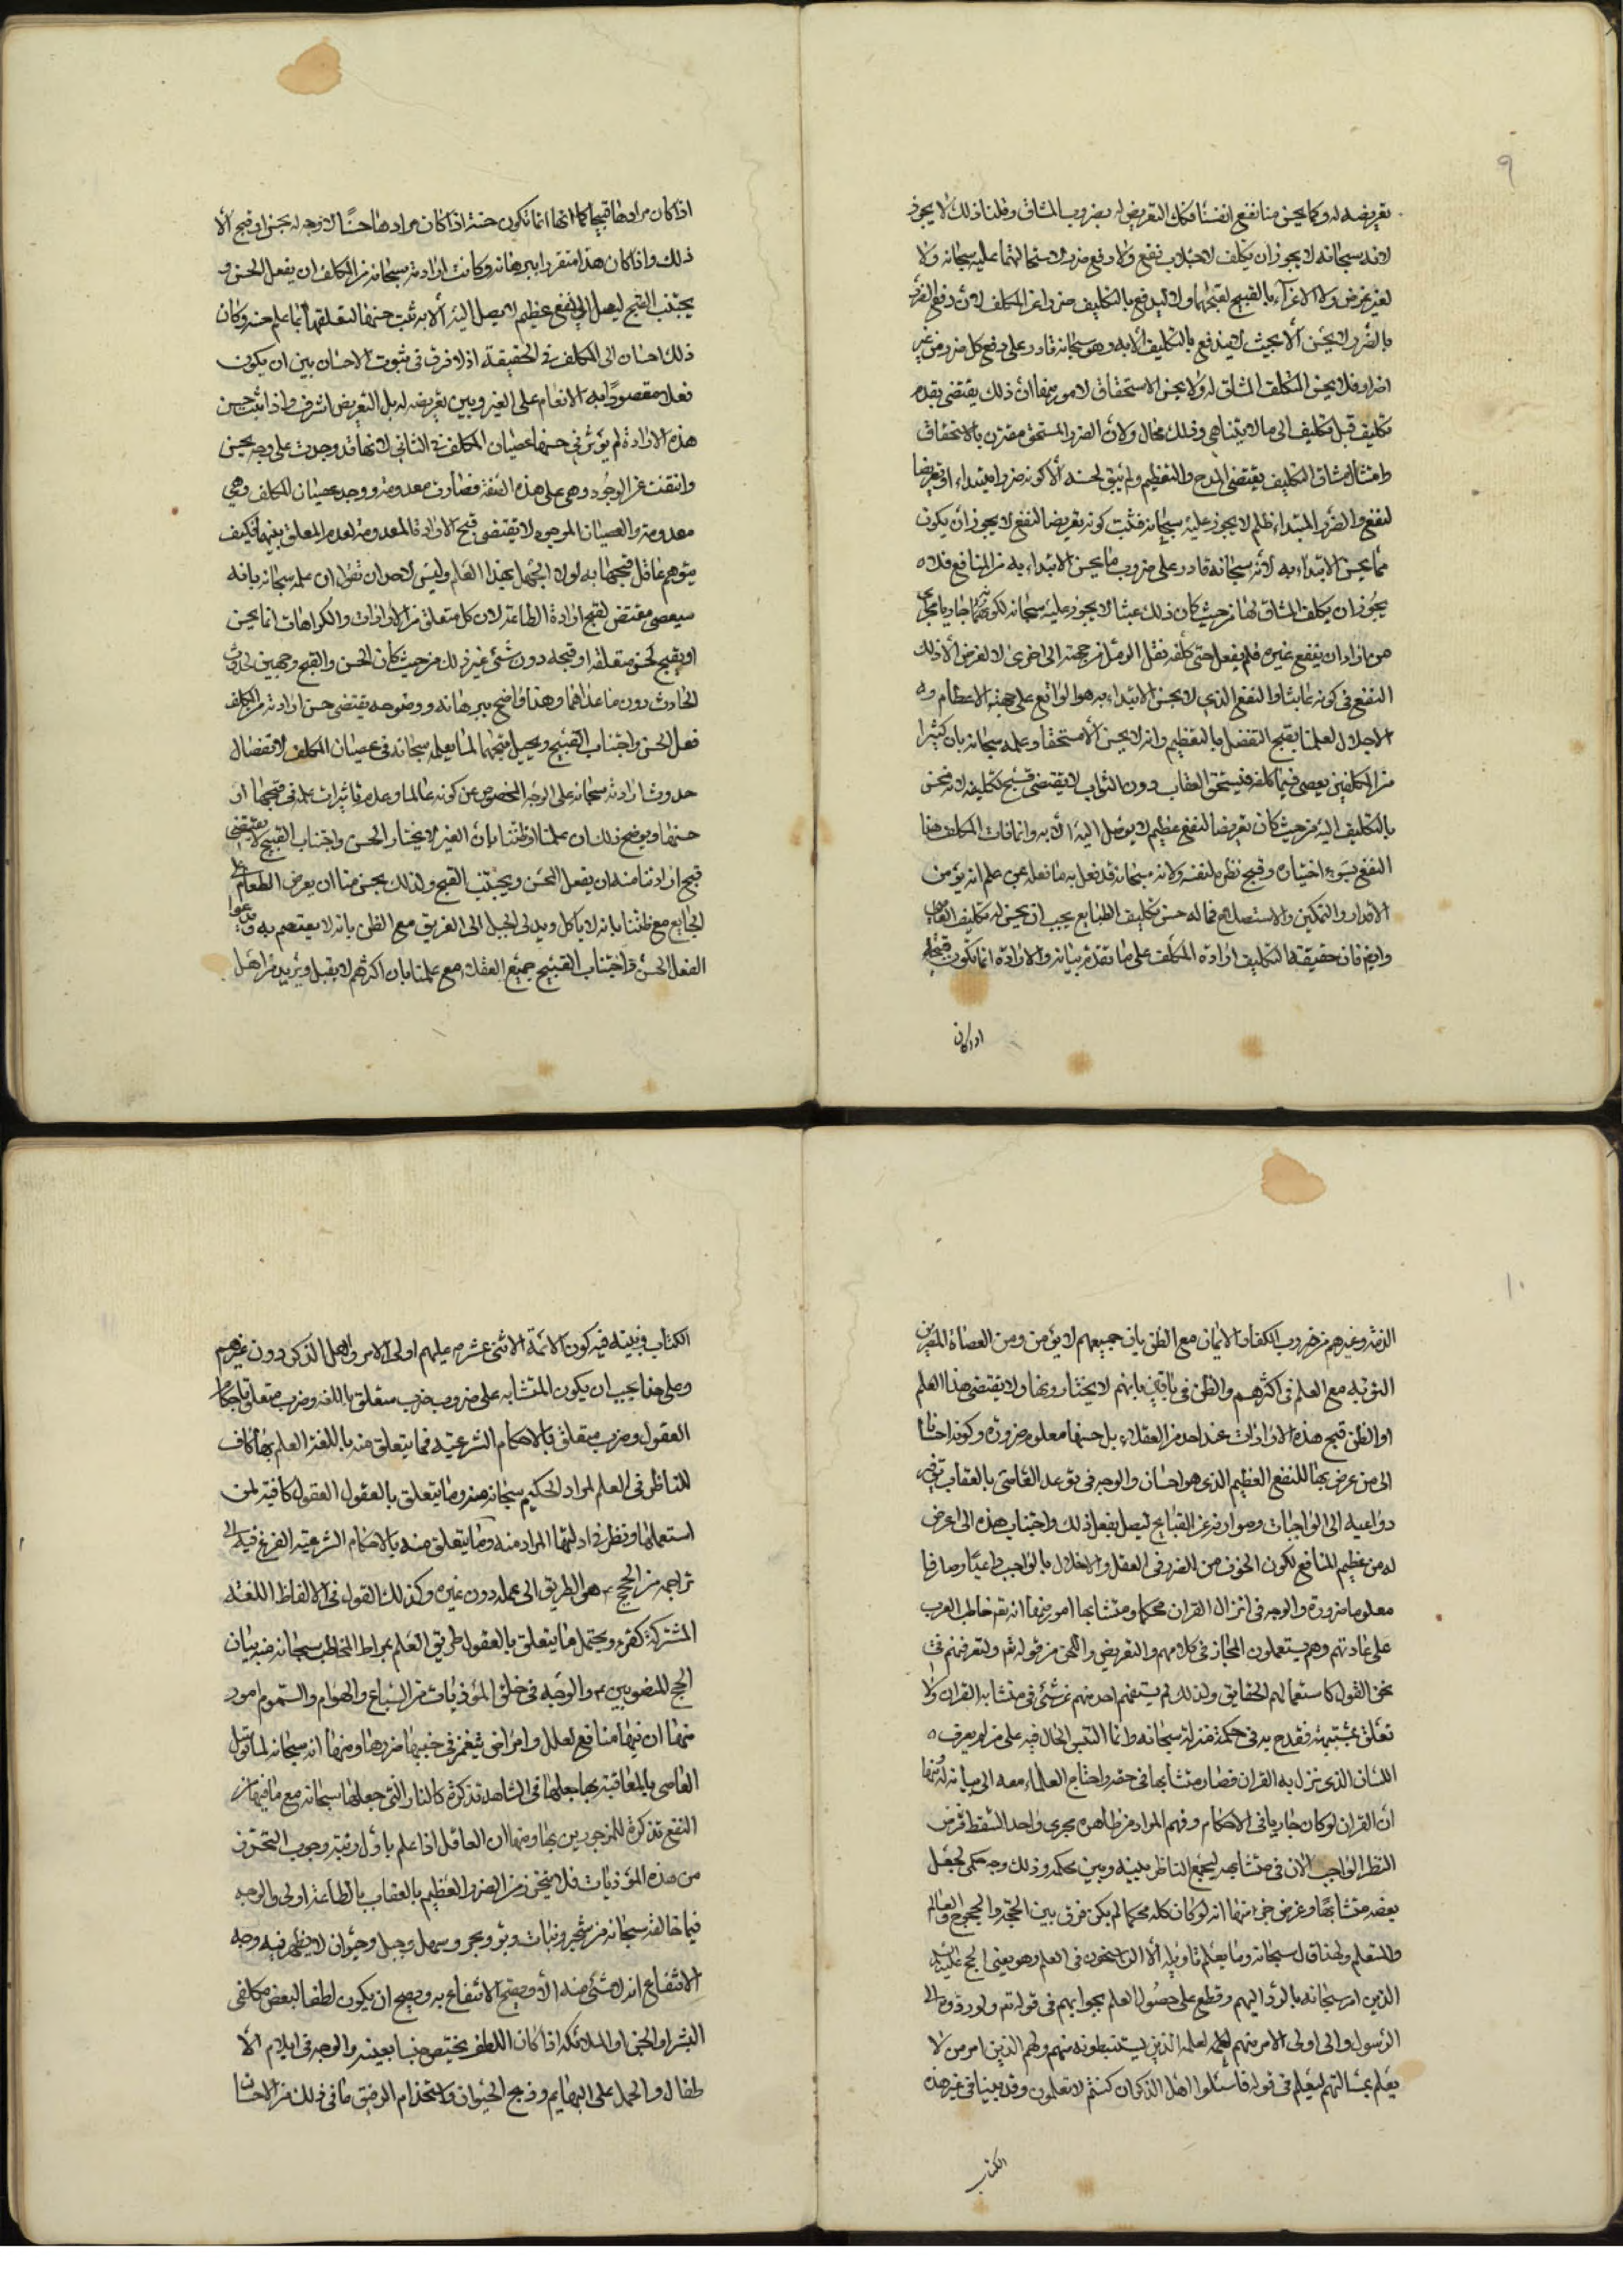 ٩
تعريضه له وكما يحسن منا نفع انفسنا فكك التعريض له بضروب المشاق وقلنا ذلك لا يجوز
لانه سبحانه لا يجوز ان يكلف لاجتلاب نفع ولا دفع ضرر لاستحالتهما عليه سبحانه ولا
لغير غرض ولا الاغراء بالقبيح لقبحهما ولا ليدفع بالتكليف ضررا عن المكلف لان دفع الضرر
بالضرر لا يحسن الا بحيث لا يندفع بالتكليف الا به وهو سبحانه قادر على دفع كل ضرر من غير
اضرار فلا يحسن التكلف المشاق له ولا يحسن الاستحقاق لامور منها ان ذلك يقتضى تقدم
تكليف قبل تكليف الى ما لا يتناهى وذلك محال ولان الضرر المستحق مقترن بالاستخفاف
وامتثال مشاق التكليف يقتضى المدح والتعظيم ولم يبق لحسنه الا كونه ضررا مبتداء او تعريضا
لنفع والضرر المبتداء ظلم لا يجوز عليه سبحانه فثبت كونه تعريضا لنفع لا يجوز ان يكون
مما يحسن الابتداء به لانه سبحانه قادر على ضروب ما يحسن الابتداء به من المنافع فلا
يجوز ان يكلف المشاق لها من حيث كان ذلك عبثا لا يجوز عليه سبحانه لكونهما جاريا مجرى
من اراد ان ينفع غيره فلم يفعل حتى كلفه نقل الرمل من جهة الى اخرى لا لغرض الا ذلك
النفع فى كونه عابثا والنفع الذى لا يحسن الابتداء به هو الواقع على جهة الاعظام و
الاجلال لعلمنا بقبح التفضل بالتعظيم وانه لا يحسن الا مستحقا وعلمه سبحانه بان كثيرا
من المكلفين يعصى فيما كلفه فيستحق العقاب دون الثواب لا يقتضى قبح تكليفه لانه محسن
بالتكليف اليه من حيث كان تعريضا لنفع عظيم لا يوصل اليه الا به وانما فات المكلف هذا
النفع بسوء اختياره وقبح نظره لنفسه ولانه سبحانه قد فعل به ما فعله بمن علم انه يؤمن
الاقدار والتمكين والاستصلاح فما له حسن تكليف الطبايع يجب ان يحسن له تكليف العاصى
وايضا فان حقيقة التكليف ارادة المكلف على ما تقدم بيانه والارادة انما تكون قبيحة
اذا كان
اذا كان مرادها قبيحا كما انها انما تكون حسنة اذا كان مرادها حسنًا لا وجه له يحسن او قبح الا
ذلك واذا كان هذا متقررا ببرهانه وكانت ارادته سبحانه من المكلف ان يفعل الحسن و
يجتنب القبيح ليصل الى نفع عظيم لا يصل اليه الا به ثبت حسنها لتعلقهما بما علم حسنه وكان
ذلك احسان الى المكلف فى الحقيقة اذ لا فرق فى ثبوت الاحسان بين ان يكون
فعلا مقصودًا به الانعام على الغير وبين تعريضه له بل التعريض اشرف واذا ثبت حسن
هذه الارادة لم يؤثر فى حسنها عصيان المكلف فى الثانى لانها قد وجدت على وجه يحسن
وانتفت عن الوجود وهى على هذه الصفة فصارت معدومة ووجد عصيان المكلف وهى
معدومة والعصيان الموجود لا يقتضى قبح الارادة المعدومة لعدم التعلق بينهما فكيف
يتوهم عاقل قبحها به لولا الجهل بهذا العلم وليس لاحد ان يقول ان علمه سبحانه بانه
سيعصى مقتض لقبح ارادة الطاعة لان كل متعلق من الارادات والكراهات انما يحسن
او يقبح لحسن متعلقه او قبحه دون شئ غير ذلك من حيث كان الحسن والقبح وجهين لحدوث
الحادث دون ما عداهما وهذا واضح ببرهانه ووضوحه يقتضى حسن ارادته من المكلف
فعل الحسن واجتناب القبيح ويحيل قبحها لما يعلمه سبحانه فى عصيان المكلف لانفصال
حدوث ارادته سبحانه على الوجه المخصوص عن كونه عالما وعدم تاثيرات علمه فى قبحها او
حسنها ويوضح ذلك ان علمنا او ظننا بان الغير لا يختار الحسن واجتناب القبيح لا يقتضى
قبح ارادتنا منه ان يفعل الحسن ويجتنب القبح ولذلك يحسن منا ان يعرض الطعام على
الجايع مع ظننا بانه لا ياكل ويدلى الحبل الى الغريق مع الظن بانه لا يعتصم به وندعوا
الفعل الحسن واجتناب القبيح جميع العقلاء مع علمنا بان اكثرهم لا يقبل ويريد من اهل
١٠
الذمة وغيرهم من ضروب الكفار الايمان مع الظن بان جميعهم لا يؤمن ومن العصاة المصرين
التوبة مع العلم فى اكثرهم والظن فى باقين بانهم لا يختارونها ولا يقتضى هذا العلم
او الظن قبح هذه الارادات عند احد من العقلاء بل حسنها معلوم ضرورة وكونه احسانا
الى من عرض بها للنفع العظيم الذى هو احسان والوجه فى توعد العاصى بالعقاب توفير
دواعيه الى الواجبات وصوارفه عن القبايح ليصل بفعل ذلك واجتناب هذه الى ما عرض
له من عظيم المنافع لكون الخوف من الضرر فى العقل والاخلال بالواجب داعيًا وصارفا
معلوما ضرورة والوجه فى انزال القران محكما ومتشابها امور منها انه تع خاطب العرب
على عادتهم وهم يستعملون المجاز فى كلامهم والتعريض واللحن من قوله تع ولتعرفنهم فى
لحن القول كاستعمالهم الحقايق ولذلك لم يستفهم احد منهم عن شئ فى متشابه القران ولا
تعلق بمشتبهه فقدح به فى حكمة منزله سبحانه وانما التبس الحال فيه على من لم يعرف
اللسان الذى نزل به القران فصار متشابها فى حقه واحتاج العلماء معه الى بيانه له ومنها
ان القران لو كان جاريا فى الاحكام وفهم المراد من ظاهره مجرى واحد السقط فرض
النظر الواجب الان فى متشابهه ليجمع الناظر بينه وبين محكمه وذلك وجه حكمى لجعل
بعضه متشابهًا وغرض حق منها انه لو كان كله محكما لم يكن فرق بين الحجة والمحجوج والعالم
والمتعلم ولهذا قال سبحانه وما يعلم تاويله الا الراسخون فى العلم وهو يعنى الحج عليه
الذين امر سبحانه بالرد اليهم وقطع على حصول العلم بجوابهم فى قوله تع ولو ردوه الى
الرسول والى اولى الامر منهم لعلمه الذين يستنبطونه منهم ولهم الذين امر من لا
يعلم بمسالتهم ليعلم فى قوله فاسئلوا اهل الذكر ان كنتم لا تعلمون وقد بينا فى غير هذه
الكتاب
الكتاب وبينه فيه كون الائمة الاثنى عشر عليهم اولى الامر واهل الذكر دون غيرهم
وعلى هذا يجب ان يكون المتشابه على ضروب ضرب متعلق باللغة وضرب متعلق باحكام
العقول وضرب متعلق بالاحكام الشرعية فما يتعلق منه باللغة العلم بها كاف
للناظر فى العلم لمراد الحكيم سبحانه منه وما يتعلق بالعقول العقول كافية لمن
استعملها ونظر فى ادلتها المراد منه وما يتعلق منه بالاحكام الشرعية الفزع فيه الى
تراجمه من الحجج ع هو الطريق الى علمه دون غيره وكذلك القول فى الالفاظ اللغة
المشتركة كقرء ويحتمل ما يتعلق بالعقول طريق العلم بمراد المخاطب سبحانه منه بيان
الحج المنصوبين ع والوجه فى خلق المؤذيات من السباع والهوام والسموم امور
منها ان فيها منافع لعلل وامراض ينغمر فى جنبها ضررها ومنها انه سبحانه لما توعد
العاصى بالمعاقبة بها جعلها فى الشاهد تذكرة كالنار التى جعلها سبحانه مع ما فيها من
النفع تذكرة للمزجورين بها ومنها ان العاقل اذا علم باول رتبة وجوب التحرز
من هذه المؤذيات فلا يتحرز من الضرر العظيم بالعقاب بالطاعة اولى والوجه
فيما خالقه سبحانه من شجر ونبات وبر وبحر وسهل وجبل وحيوان لا يظهر فيه وجه
الانتفاع انه لا شئ منه الا ويصح الانتفاع به ويصح ان يكون لطفا لبعض مكلفى
البشر او الجن او الملائكه اذا كان اللطف يختص جنسا بعينه والوجه فى ايلام الا
طفال والحمل على البهايم وذبح الحيوان واستخدام الرقيق ما فى ذلك من الاحسان